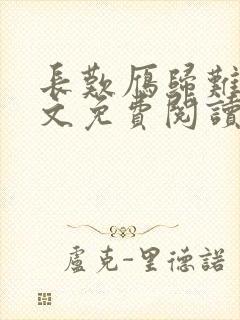 長歎雁歸難
文免費閱讀
盧克-里德諾